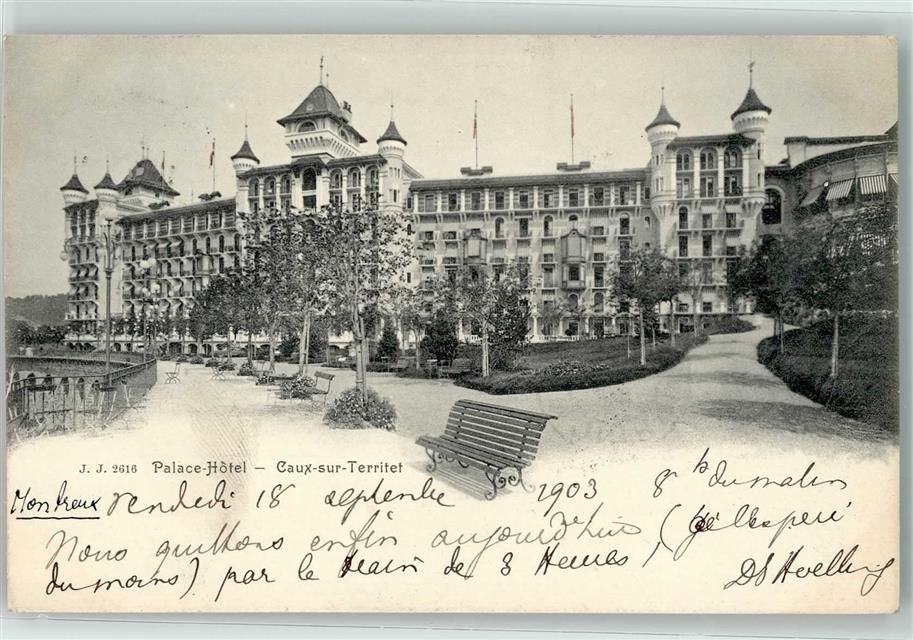 J. J. 2616 Palace-Hôtel – Caux-sur-Territet
Montreux Vendredi 18 septembre 1903 8h du matin
Nous quittons enfin aujourd'hui (je l'esperè
du moins) par le train de 3 Heures